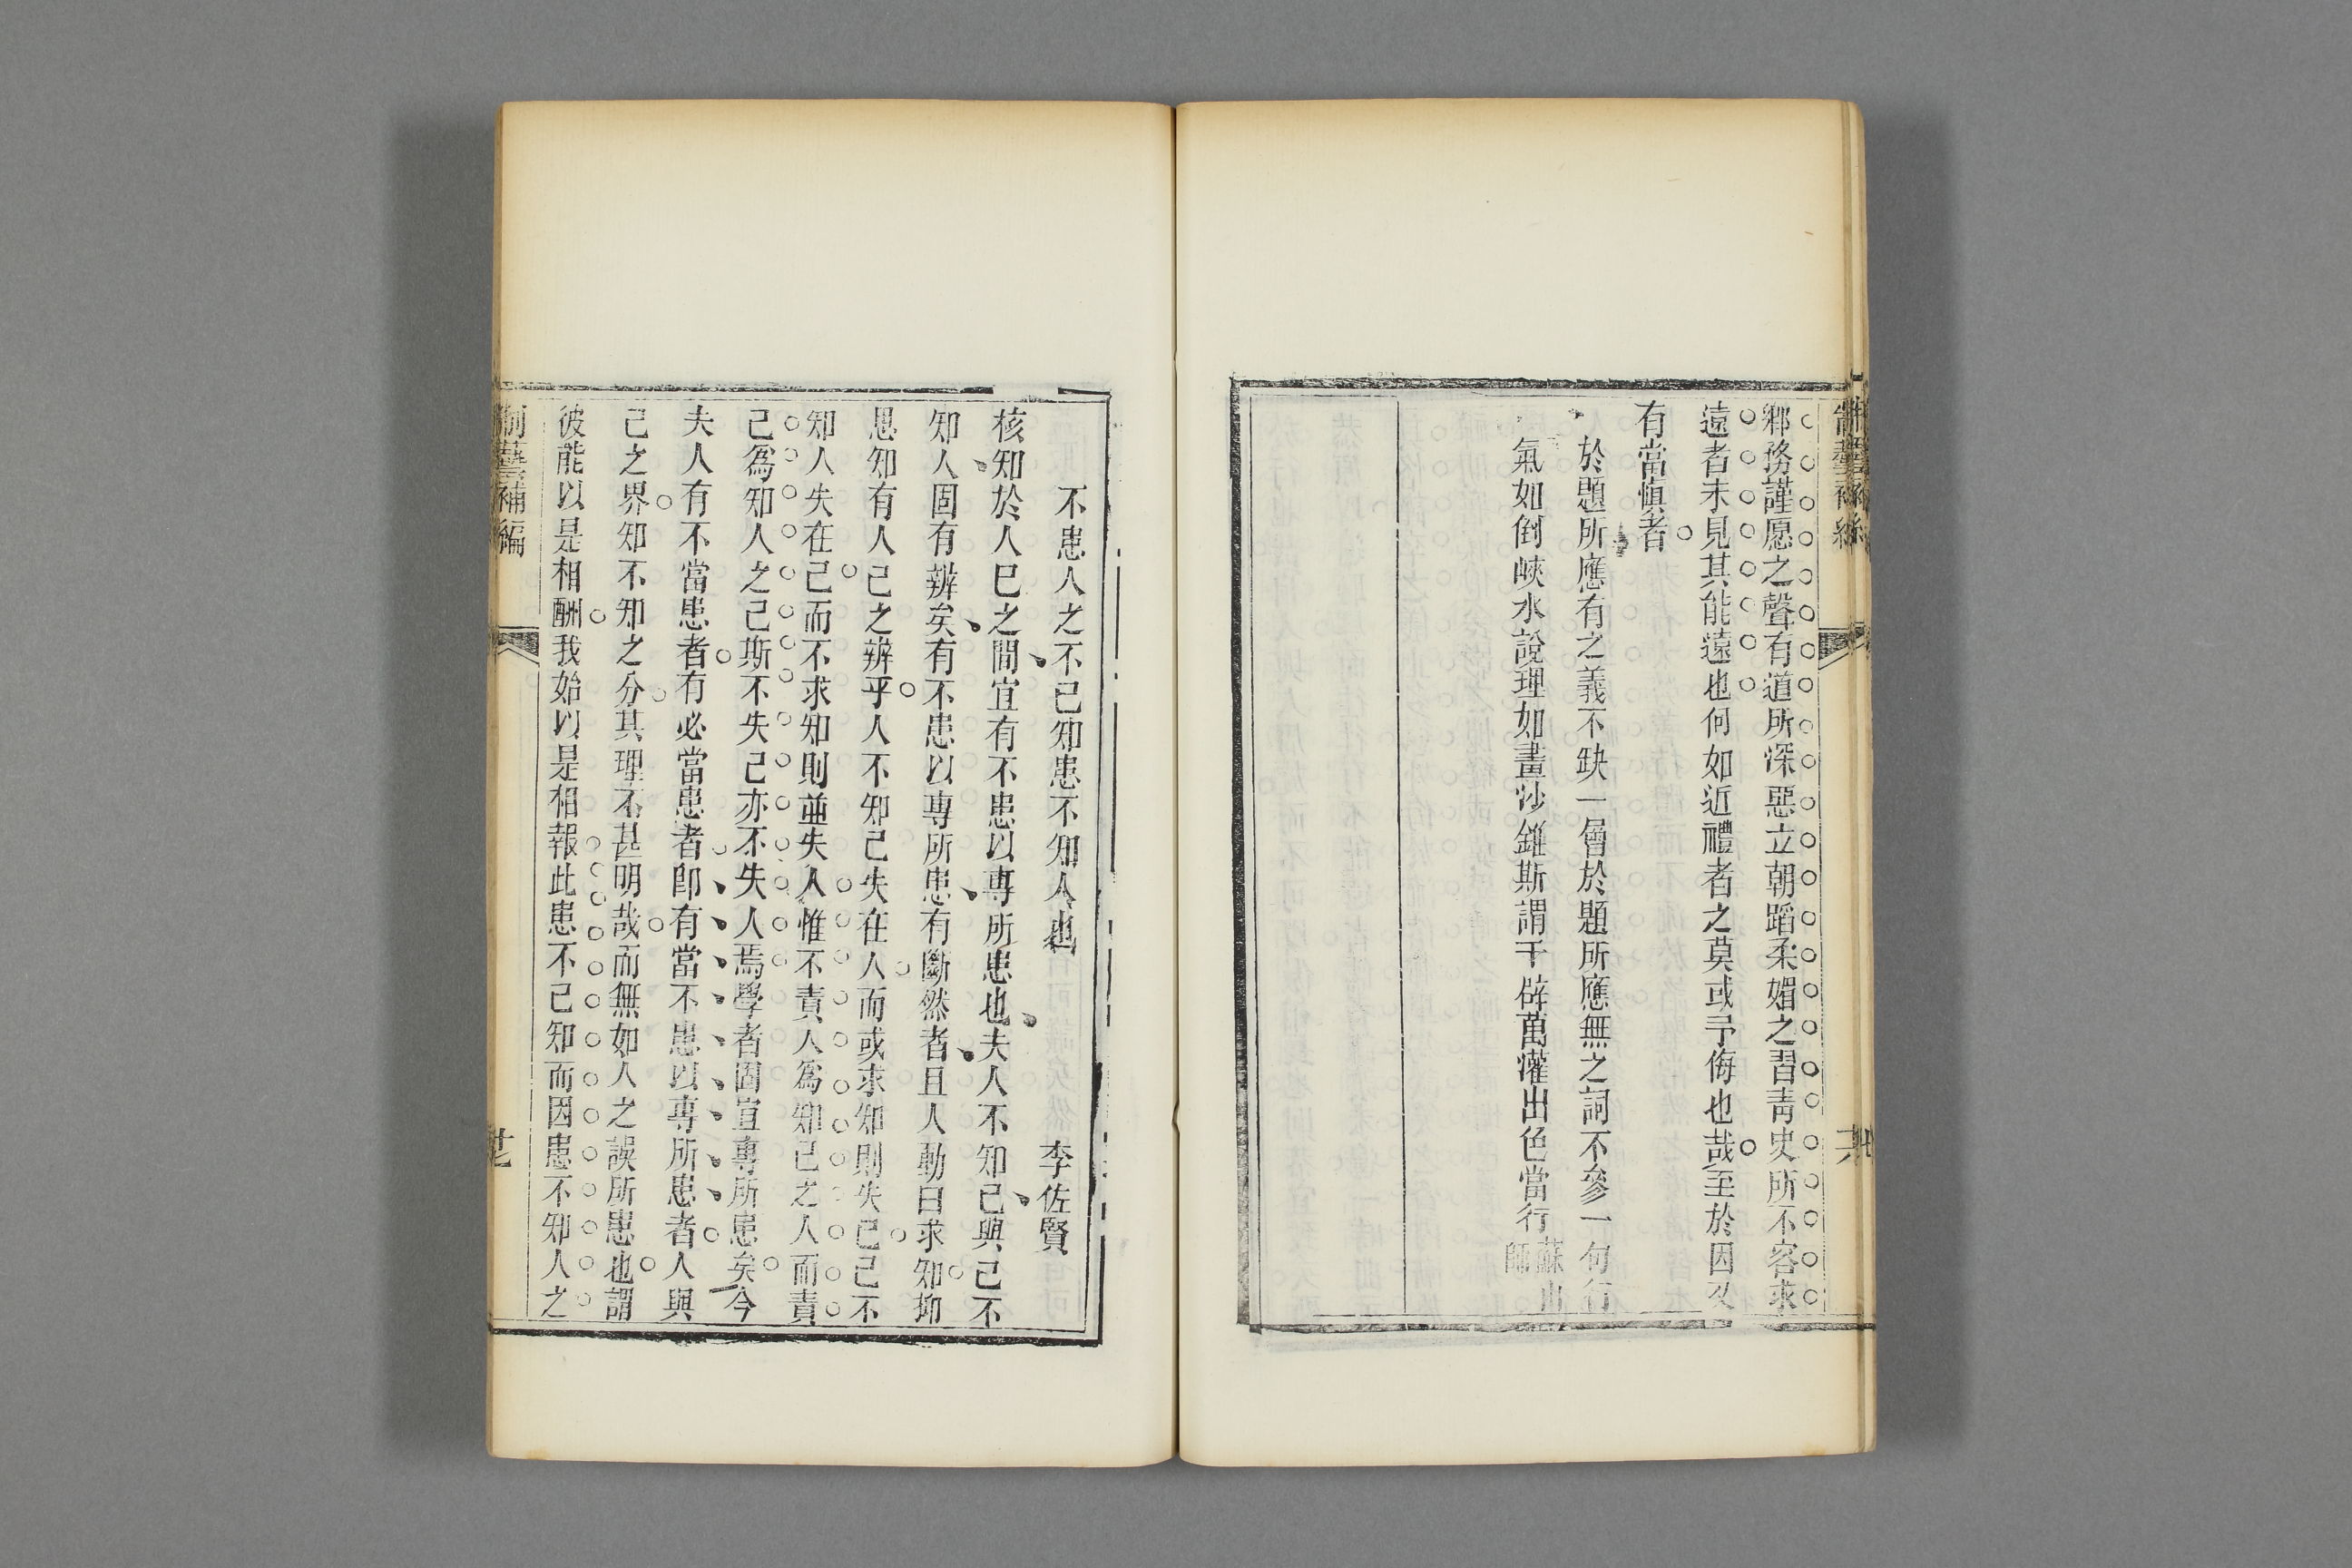 鄉務謹愿之聲有道所深惡立朝蹈柔媚之習靑史所不容求
遠者未見其能遠也何如近禮者之莫或予侮也哉至於因又
有當慎者
於題所應有之義不缺一層於題所應無之詞不參一句行
氣如倒峽水說理如畫沙錐斯謂千辟萬灌出色當行 蘇山
師
不患人之不己知患不知人也
李佐賢
核知於人已之間宜有不患以專所患也夫人不知己與己不
知人固有辨矣有不患以專所患有斷然者且人動曰求知抑
思知有人己之辨乎人不知己失在人而或求知則失己己不
知人失在己而不求知則並失人惟不責人爲知己之人而責
己爲知人之己斯不失己亦不失人焉學者固宜專所患矣今
夫人有不當患者有必當患者卽有當不患以專所患者人與
己之界知不知之分其理不甚明哉而無如人之誤所患也謂
彼能以是相酬我始以是相報此患不己知而因患不知人之
制藝補編
廿七